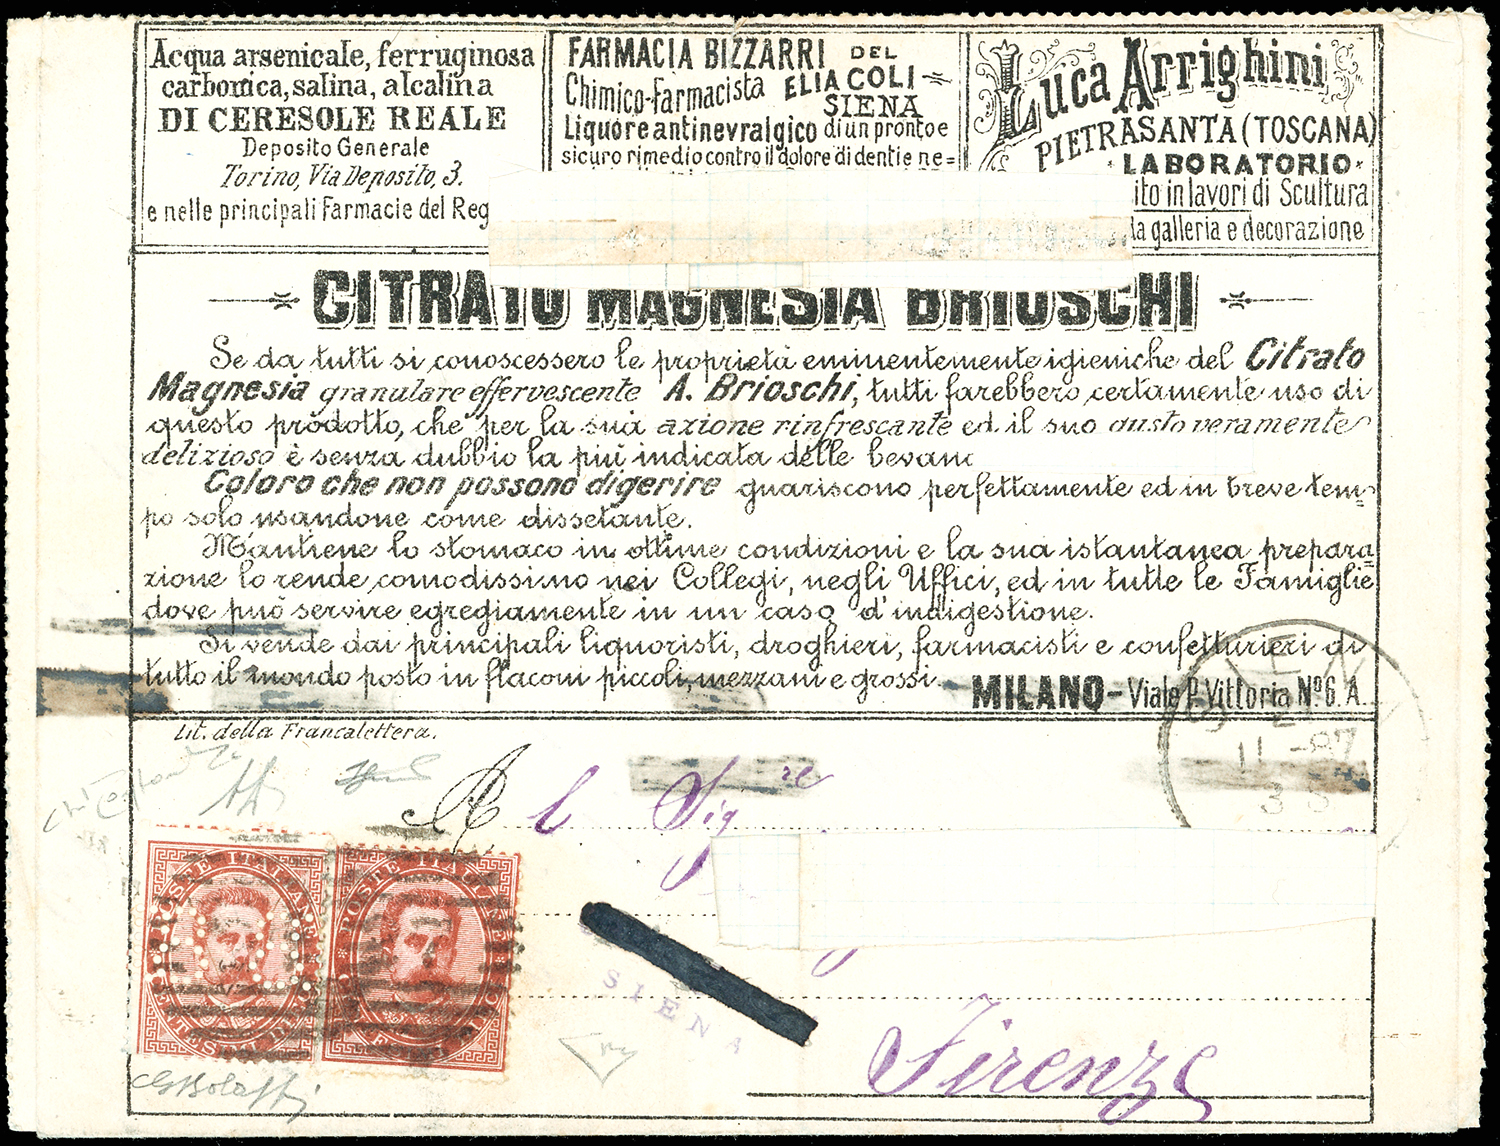 Acqua arsenicale, ferruginosa
carbonica, salina, alcalina
DI CERESOLE REALE
Deposito Generale
Torino, Via Deposito, 3.
e nelle principali Farmacie del Reg
FARMACIA BIZZARRI DEL
Chimico-Farmacista ELIA COLI
SIENA
Liquore antinevralgico di un pronto e
sicuro rimedio contro il dolore di denti e ne=
Luca Arrighini
PIETRASANTA (TOSCANA)
LABORATORIO
ito in lavori di Scultura
da galleria e decorazione
CITRATO MAGNESIA BRIOSCHI
Se da tutti si conoscessero le proprietà eminentemente igieniche del Citrato
Magnesia granulare effervescente A. Brioschi, tutti farebbero certamente uso di
questo prodotto, che per la sua azione rinfrescante ed il suo gusto veramente
delizioso è senza dubbio la più indicata delle bevan
Coloro che non possono digerire guariscono perfettamente ed in breve tem=
po solo usandone come dissetante.
Mantiene lo stomaco in ottime condizioni e la sua istantanea prepara=
zione lo rende comodissimo nei Collegi, negli Uffici, ed in tutte le Famiglie
dove può servire egregiamente in un caso d'indigestione.
Si vende dai principali liquoristi, droghieri, farmacisti e confetturieri di
tutto il mondo posto in flaconi piccoli, mezzani e grossi. MILANO - Viale P. Vittoria Nº 6. A.
Lit. della Francalettera.
Al Sigre
POSTE ITALIANE
POSTE ITALIANE
SIENA
Firenze
GBolaffi